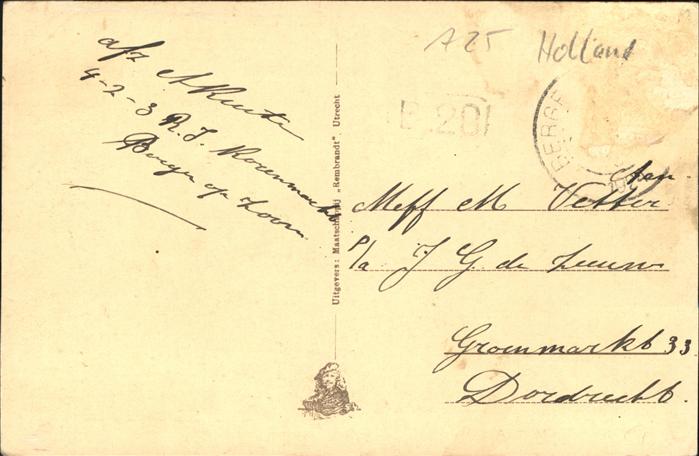 A25 Holland
B.201
BERGE
afz A Ruute
4-2-3 R.J. Korenmarkt
Bergen op Zoom.
Uitgevers: Maatschappij „Rembrandt”, Utrecht
Aan
Meff M Vetter
p/a J G. de Leeuw
Groenmarkt 33
Dordrecht.